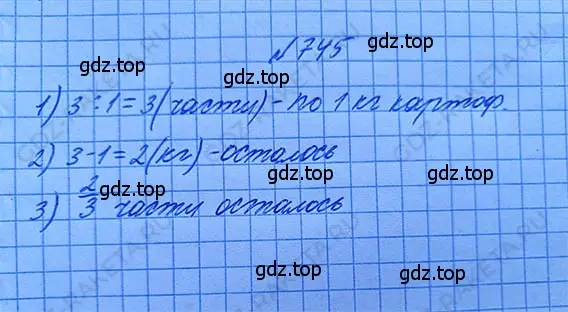 №745
1) 3 : 1 = 3 (части) - по 1 кг картоф.
2) 3-1 = 2 (кг) - осталось
3) 2/3 части осталось
gdz.top
gdz.top
gdz.top
gdz.top
gdz.top
gdz.top
gdz.top
gdz.top